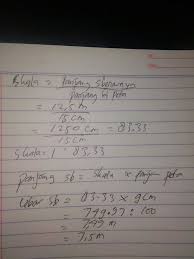 Skala = Panjang sbenarnya
Panjang di peta
= 12,5 m
15 cm
= 1250 cm = 83.33
15 cm
Skala = 1 : 83,33
Panjang sb = Skala x panjang peta
Lebar sb = 83.33 x 9cm
= 749.97 : 100
= 7,49 m
= 7,5 m